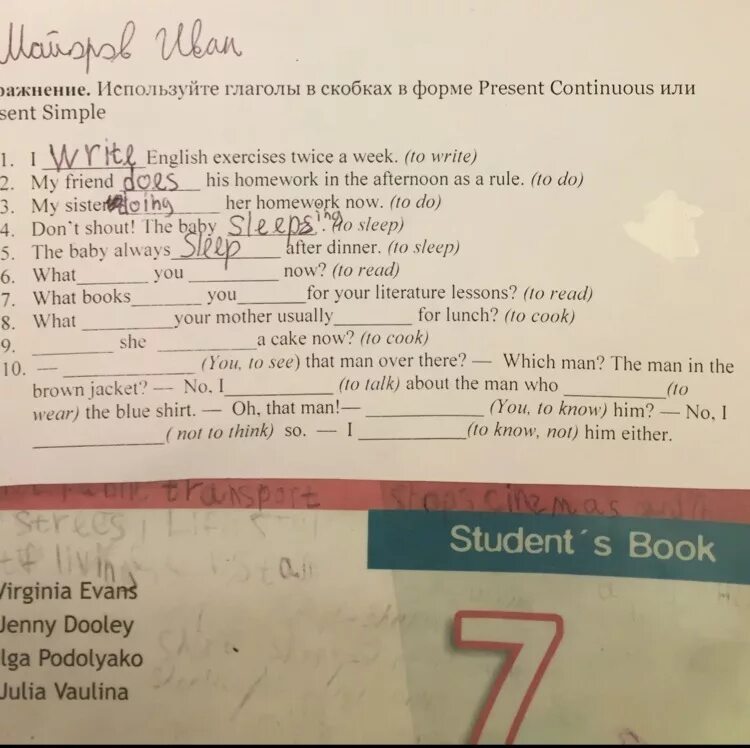 Майоров Иван
ражнение. Используйте глаголы в скобках в форме Present Continuous или
sent Simple
1. I write English exercises twice a week. (to write)
2. My friend does his homework in the afternoon as a rule. (to do)
3. My sister doing her homework now. (to do)
4. Don't shout! The baby sleepsing. (to sleep)
5. The baby always sleep after dinner. (to sleep)
6. What________ you __________ now? (to read)
7. What books________ you________for your literature lessons? (to read)
8. What __________your mother usually________ for lunch? (to cook)
9. _________ she ___________a cake now? (to cook)
10. — _______________ (You, to see) that man over there? — Which man? The man in the
brown jacket? — No, I____________(to talk) about the man who ___________(to
wear) the blue shirt. — Oh, that man!— _____________ (You, to know) him? — No, I
______________( not to think) so. — I ____________(to know, not) him either.
transport stops cinemas
of living
Student´s Book
Virginia Evans
Jenny Dooley
lga Podolyako
Julia Vaulina
7